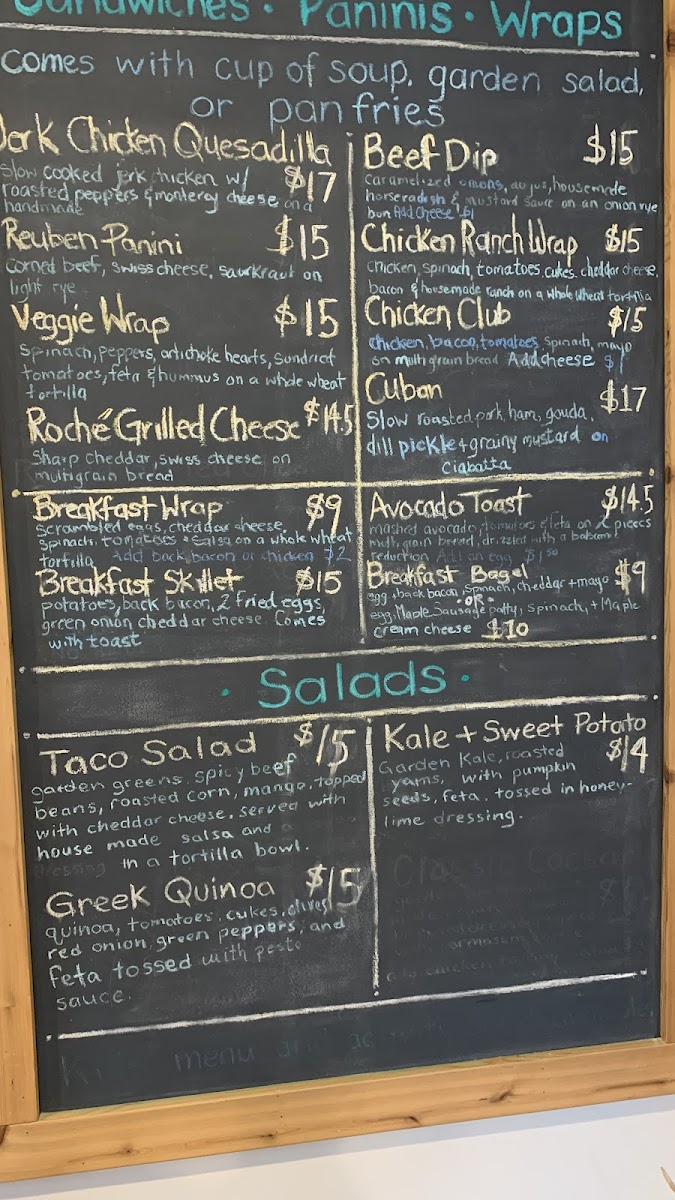 Sandwiches · Paninis · Wraps
comes with cup of soup, garden salad,
or pan fries
Jerk Chicken Quesadilla $17
Slow cooked jerk chicken w/
roasted peppers & monterey cheese and
handmade
Reuben Panini $15
Corned beef, swiss cheese, saurkraut on
light rye
Veggie Wrap $15
Spinach, peppers, artichoke hearts, sundried
tomatoes, feta & hummus on a whole wheat
tortilla
Roché Grilled Cheese $14.5
Sharp cheddar, swiss cheese on
multigrain bread
Beef Dip $15
Caramelized onions, au jus, housemade
horseradish & mustard sauce on an onion rye
bun Add Cheese $1
Chicken Ranch Wrap $15
chicken, spinach, tomatoes, cukes, cheddar cheese,
bacon & housemade ranch on a whole wheat tortilla
Chicken Club $15
chicken, bacon, tomatoes, spinach, mayo
on multigrain bread Add cheese $1
Cuban $17
Slow roasted pork, ham, gouda,
dill pickle + grainy mustard on
Ciabatta
Breakfast Wrap $9
Scrambled eggs, cheddar cheese,
spinach, tomatoes & salsa on a whole wheat
tortilla Add back bacon or chicken $2
Breakfast Skillet $15
potatoes, back bacon, 2 fried eggs,
green onion, cheddar cheese. Comes
with toast
Avocado Toast $14.5
mashed avocado, tomatoes & feta on 2 pieces
multi grain bread, drizzled with a balsamic
reduction Add an egg $1.50
Breakfast Bagel $9
egg, back bacon, spinach, cheddar + mayo
· OR ·
egg, Maple Sausage patty, spinach, + Maple
cream cheese $10
· Salads ·
Taco Salad $15
garden greens, spicy beef
beans, roasted corn, mango, topped
with cheddar cheese. served with
house made salsa and
in a tortilla bowl.
Greek Quinoa $15
quinoa, tomatoes, cukes, olives
red onion, green peppers, and
feta tossed with pesto
sauce.
Kale + Sweet Potato $14
Garden Kale, roasted
yams, with pumpkin
seeds, feta. tossed in honey-
lime dressing.
menu